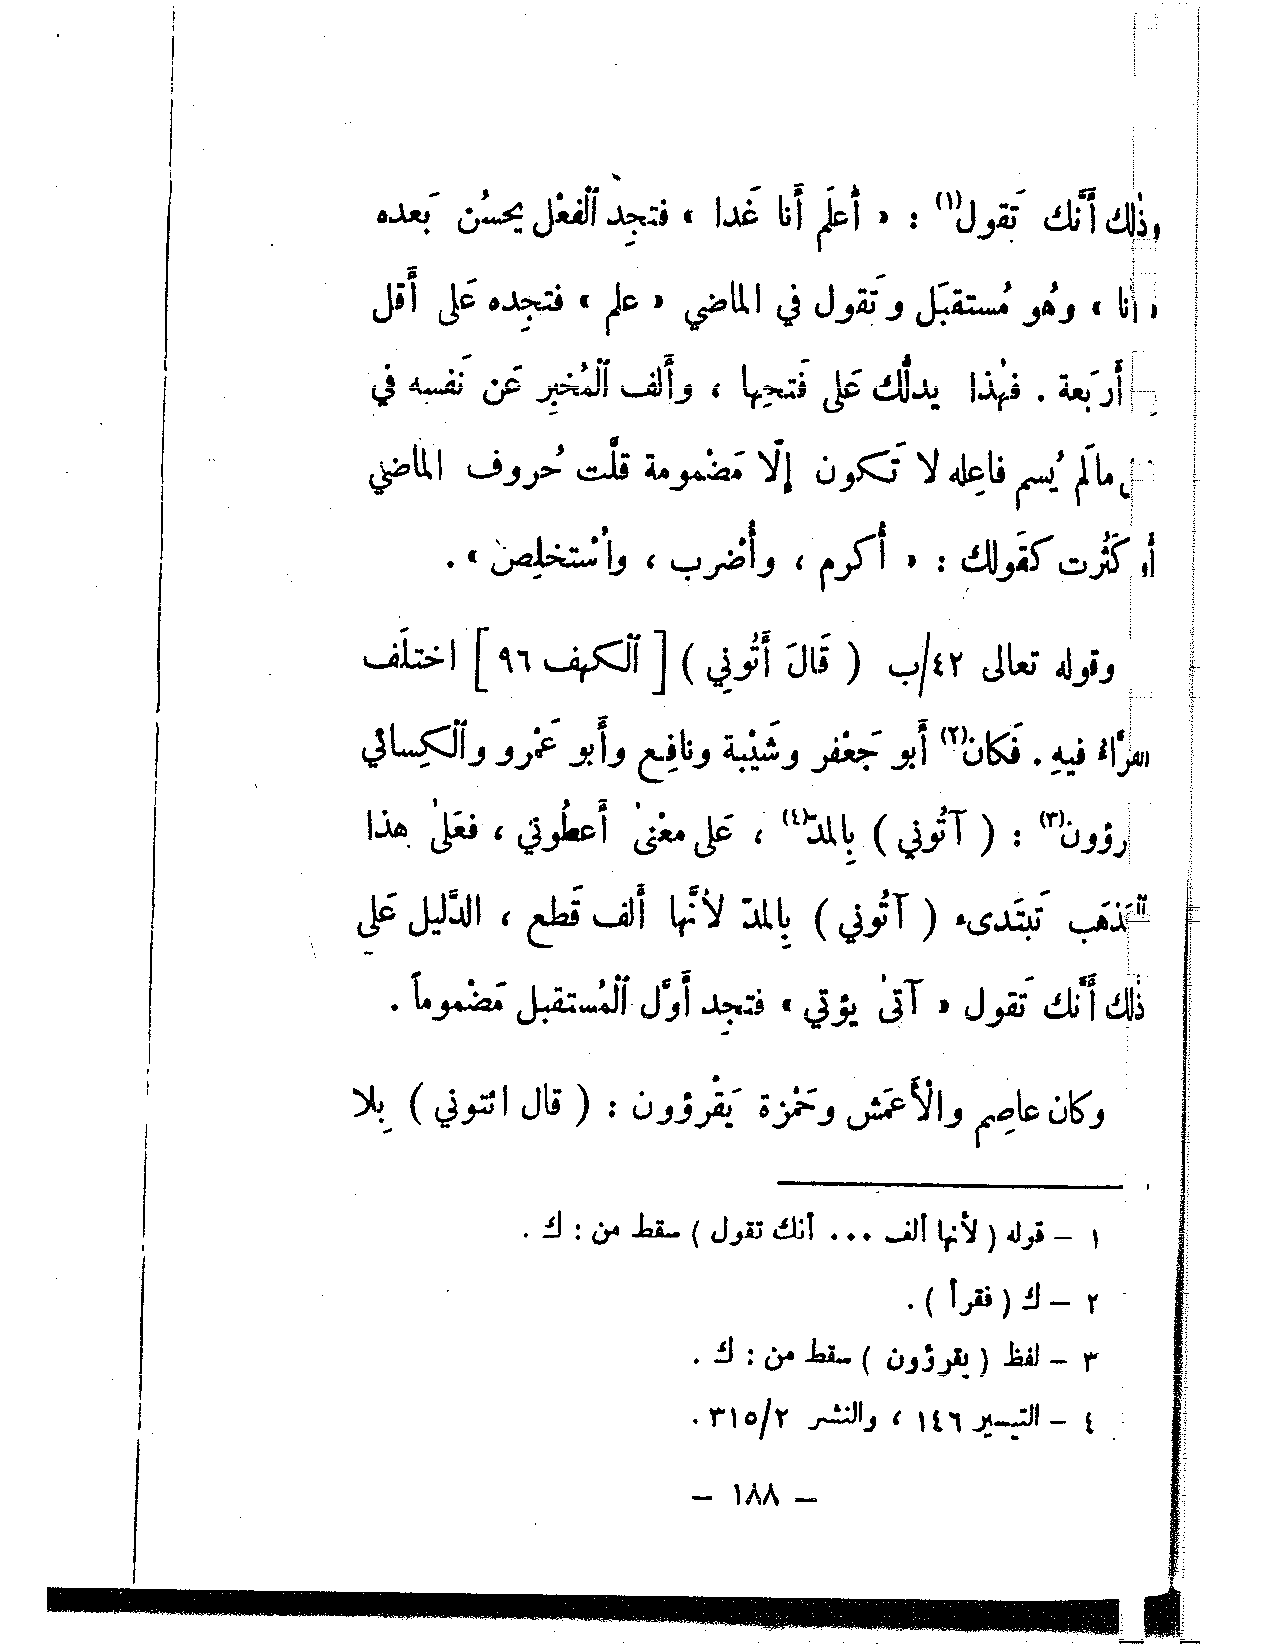 وذٰلك أَنَّك تَقول(١) : « أَعلَم أَنا غَدا » فتجِد ٱلْفعْل يحسُن بَعده
« أنا » وهُو مُستقبَل وتَقول في الماضي « علم » فتجِده عَلى أَقل
أَربَعة . فهٰذا يدلُّك عَلى فَتحِها ، وأَلف ٱلْمُخبِر عَن نَفسه في
مالَم يُسم فاعِله لا تَكون إلّا مَضْمومة قلَّت حُروف الماضي
أو كَثُرت كقَولك : « أُكرم ، وأُضْرب ، واُسْتخلِص » .
وقوله تعالى ٤٢/ب ( قَالَ أَتُونِي ) [ ٱلْكهف ٩٦ ] اختلَف
القرَّاءُ فيهِ . فَكان(٢) أَبو جَعْفر وشَيْبة ونافِع وأَبو عَمْرو وٱلْكِسائي
يقرؤون(٣) : ( آتُوني ) بِالمدّ(٤) ، عَلى معْنىٰ أَعطُوني ، فعَلىٰ هذا
ٱلْمَذهَب تَبتَدىء ( آتُوني ) بِالمدّ لأنَّها أَلف قَطع ، الدَّليل عَلى
ذٰلك أَنَّك تَقول « آتىٰ يؤتي » فتجِد أَوَّل ٱلْمُستقبل مَضْموماً .
وكان عاصِم والْأَعمَش وحَمْزة يَقْرؤون : ( قال ائتوني ) بِلا
١ – قوله ( لأنها ألف ... أنك تقول ) سقط من : ك .
٢ – ك ( فقرأ ) .
٣ – لفظ ( يقرؤون ) سقط من : ك .
٤ – التيسير ١٤٦ ، والنشر ٣١٥/٢ .
– ١٨٨ –